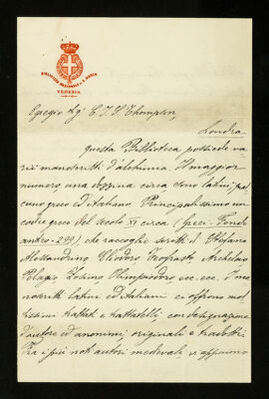 BIBLIOTECA NAZIONALE DI S. MARCO
VENEZIA
Egregio Sigr C. J. S. Thompson,
Londra
questa Biblioteca possiede va-
rii manoscritti d'alchimia. Il maggior
numero una dozzina circa sono latini; pal
cuno greco ed italiano. Principalissimo un
codice greco del secolo XI circa (greci. Fondo
antico - 299) che raccoglie scritti di Stefano
Alessandrino, Eliodoro, Teofrasto, Archelao
Pelagio, Zosimo, Olimpiodoro, ecc. ecc. I ma
noscritti latini ed italiani ci offrono mol
tissimi trattati e trattatelli, con designazione
d'autore ed anonimi, originali e tradotti.
Tra i più noti autori medievali vi appaiono